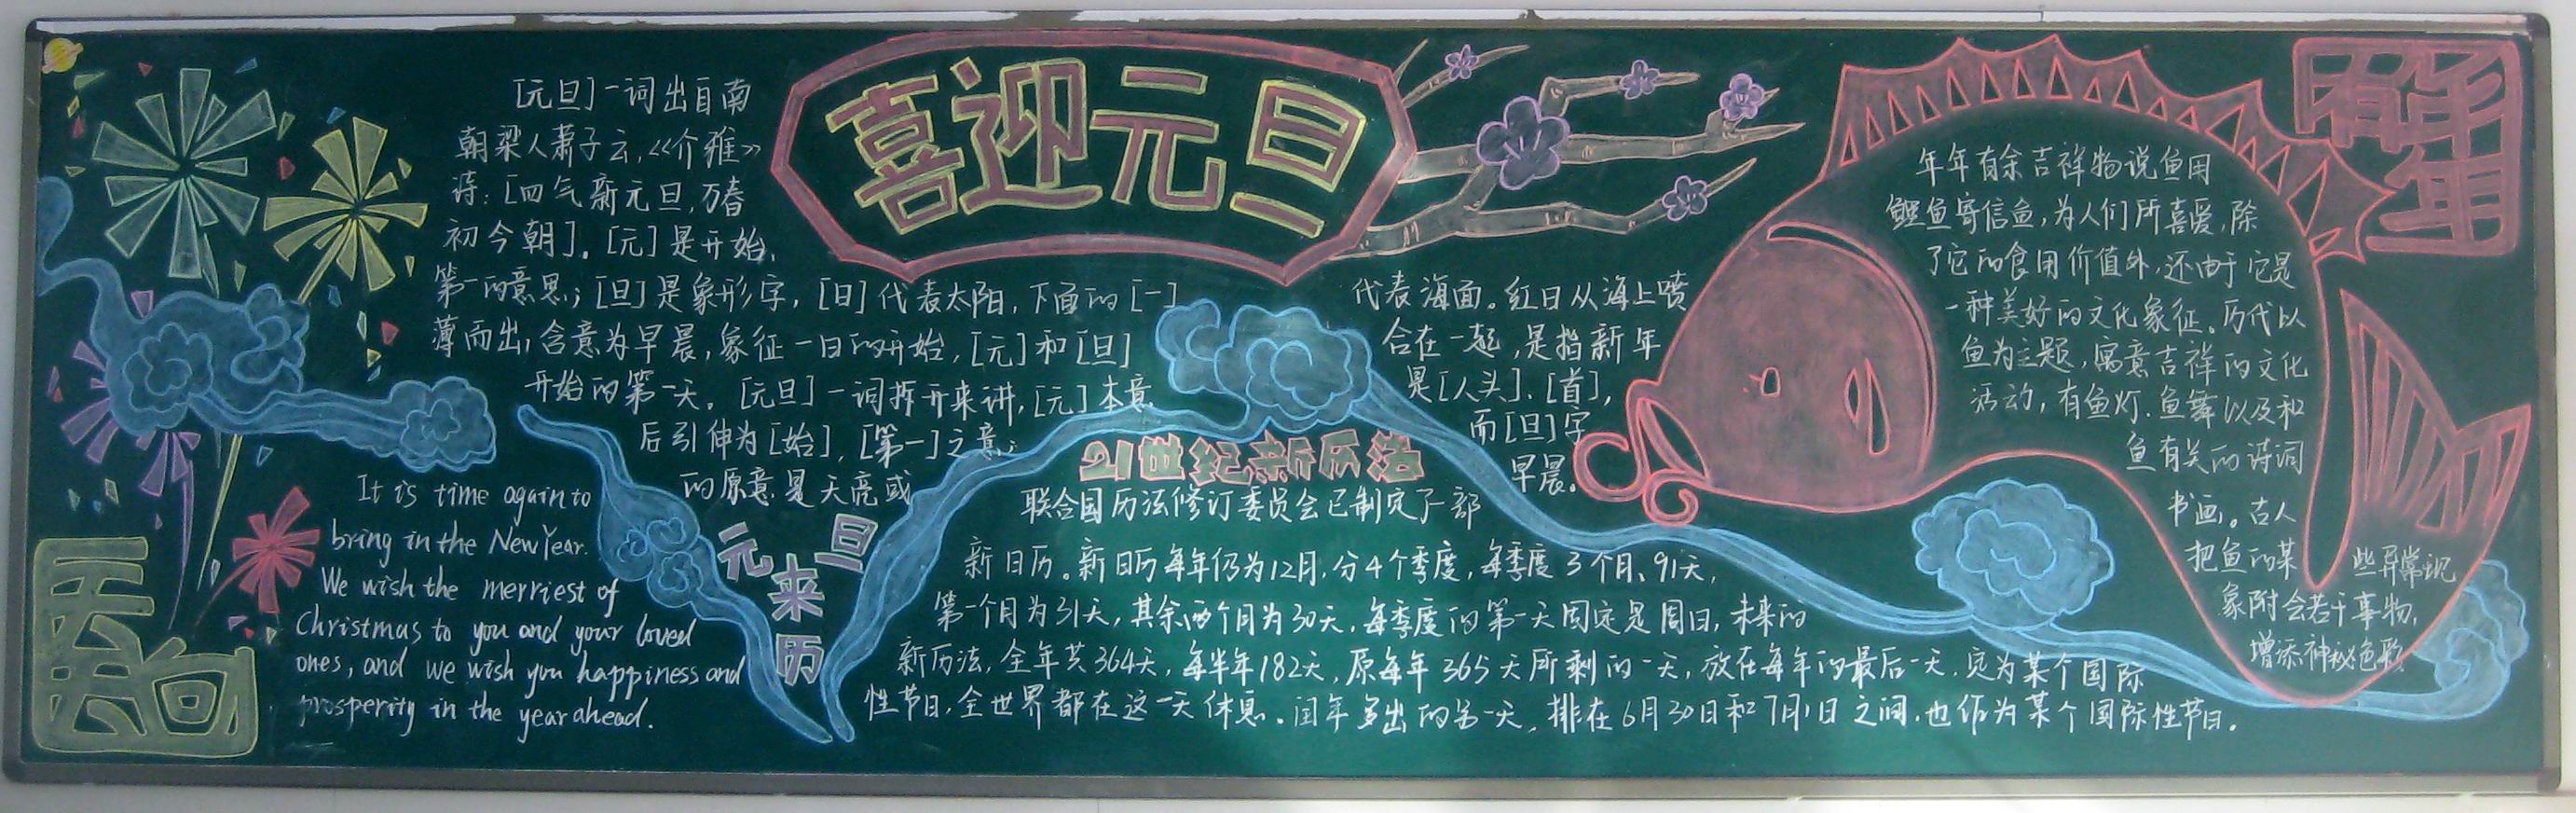 喜迎元旦
[元旦]一词出自南
朝梁人萧子云,《介雅》
诗:[四气新元旦,万春
初今朝]。[元]是开始,
第一的意思;[旦]是象形字,[日]代表太阳,下面的[一]
代表海面。红日从海上喷
薄而出,含意为早晨,象征一日的开始,[元]和[旦]
合在一起,是指新年
开始的第一天。[元旦]一词拆开来讲,[元]本意
是[人头].[首],
后引伸为[始],[第一]之意;
而[旦]字
的原意是天亮或
早晨。
元旦
来
历
It is time again to
bring in the New Year.
We wish the merriest of
Christmas to you and your loved
ones, and we wish you happiness and
prosperity in the year ahead.
21世纪新历法
联合国历法修订委员会已制定了一部
新日历。新日历每年仍为12月,分4个季度,每季度3个月、91天,
第一个月为31天,其余两个月为30天,每季度的第一天固定是周日,未来的
新历法,全年共364天,每半年182天,原每年365天所剩的一天,放在每年的最后一天,定为某个国际
性节日,全世界都在这一天休息。闰年多出的另一天,排在6月30日和7月1日之间,也作为某个国际性节日。
年年有余吉祥物说鱼用
鲤鱼寄信鱼,为人们所喜爱,除
了它的食用价值外,还由于它是
一种美好的文化象征。历代以
鱼为主题,寓意吉祥的文化
活动,有鱼灯.鱼舞以及和
鱼有关的诗词
书画。古人
把鱼的某些异常现
象附会若干事物,
增添神秘色彩
年
有
年